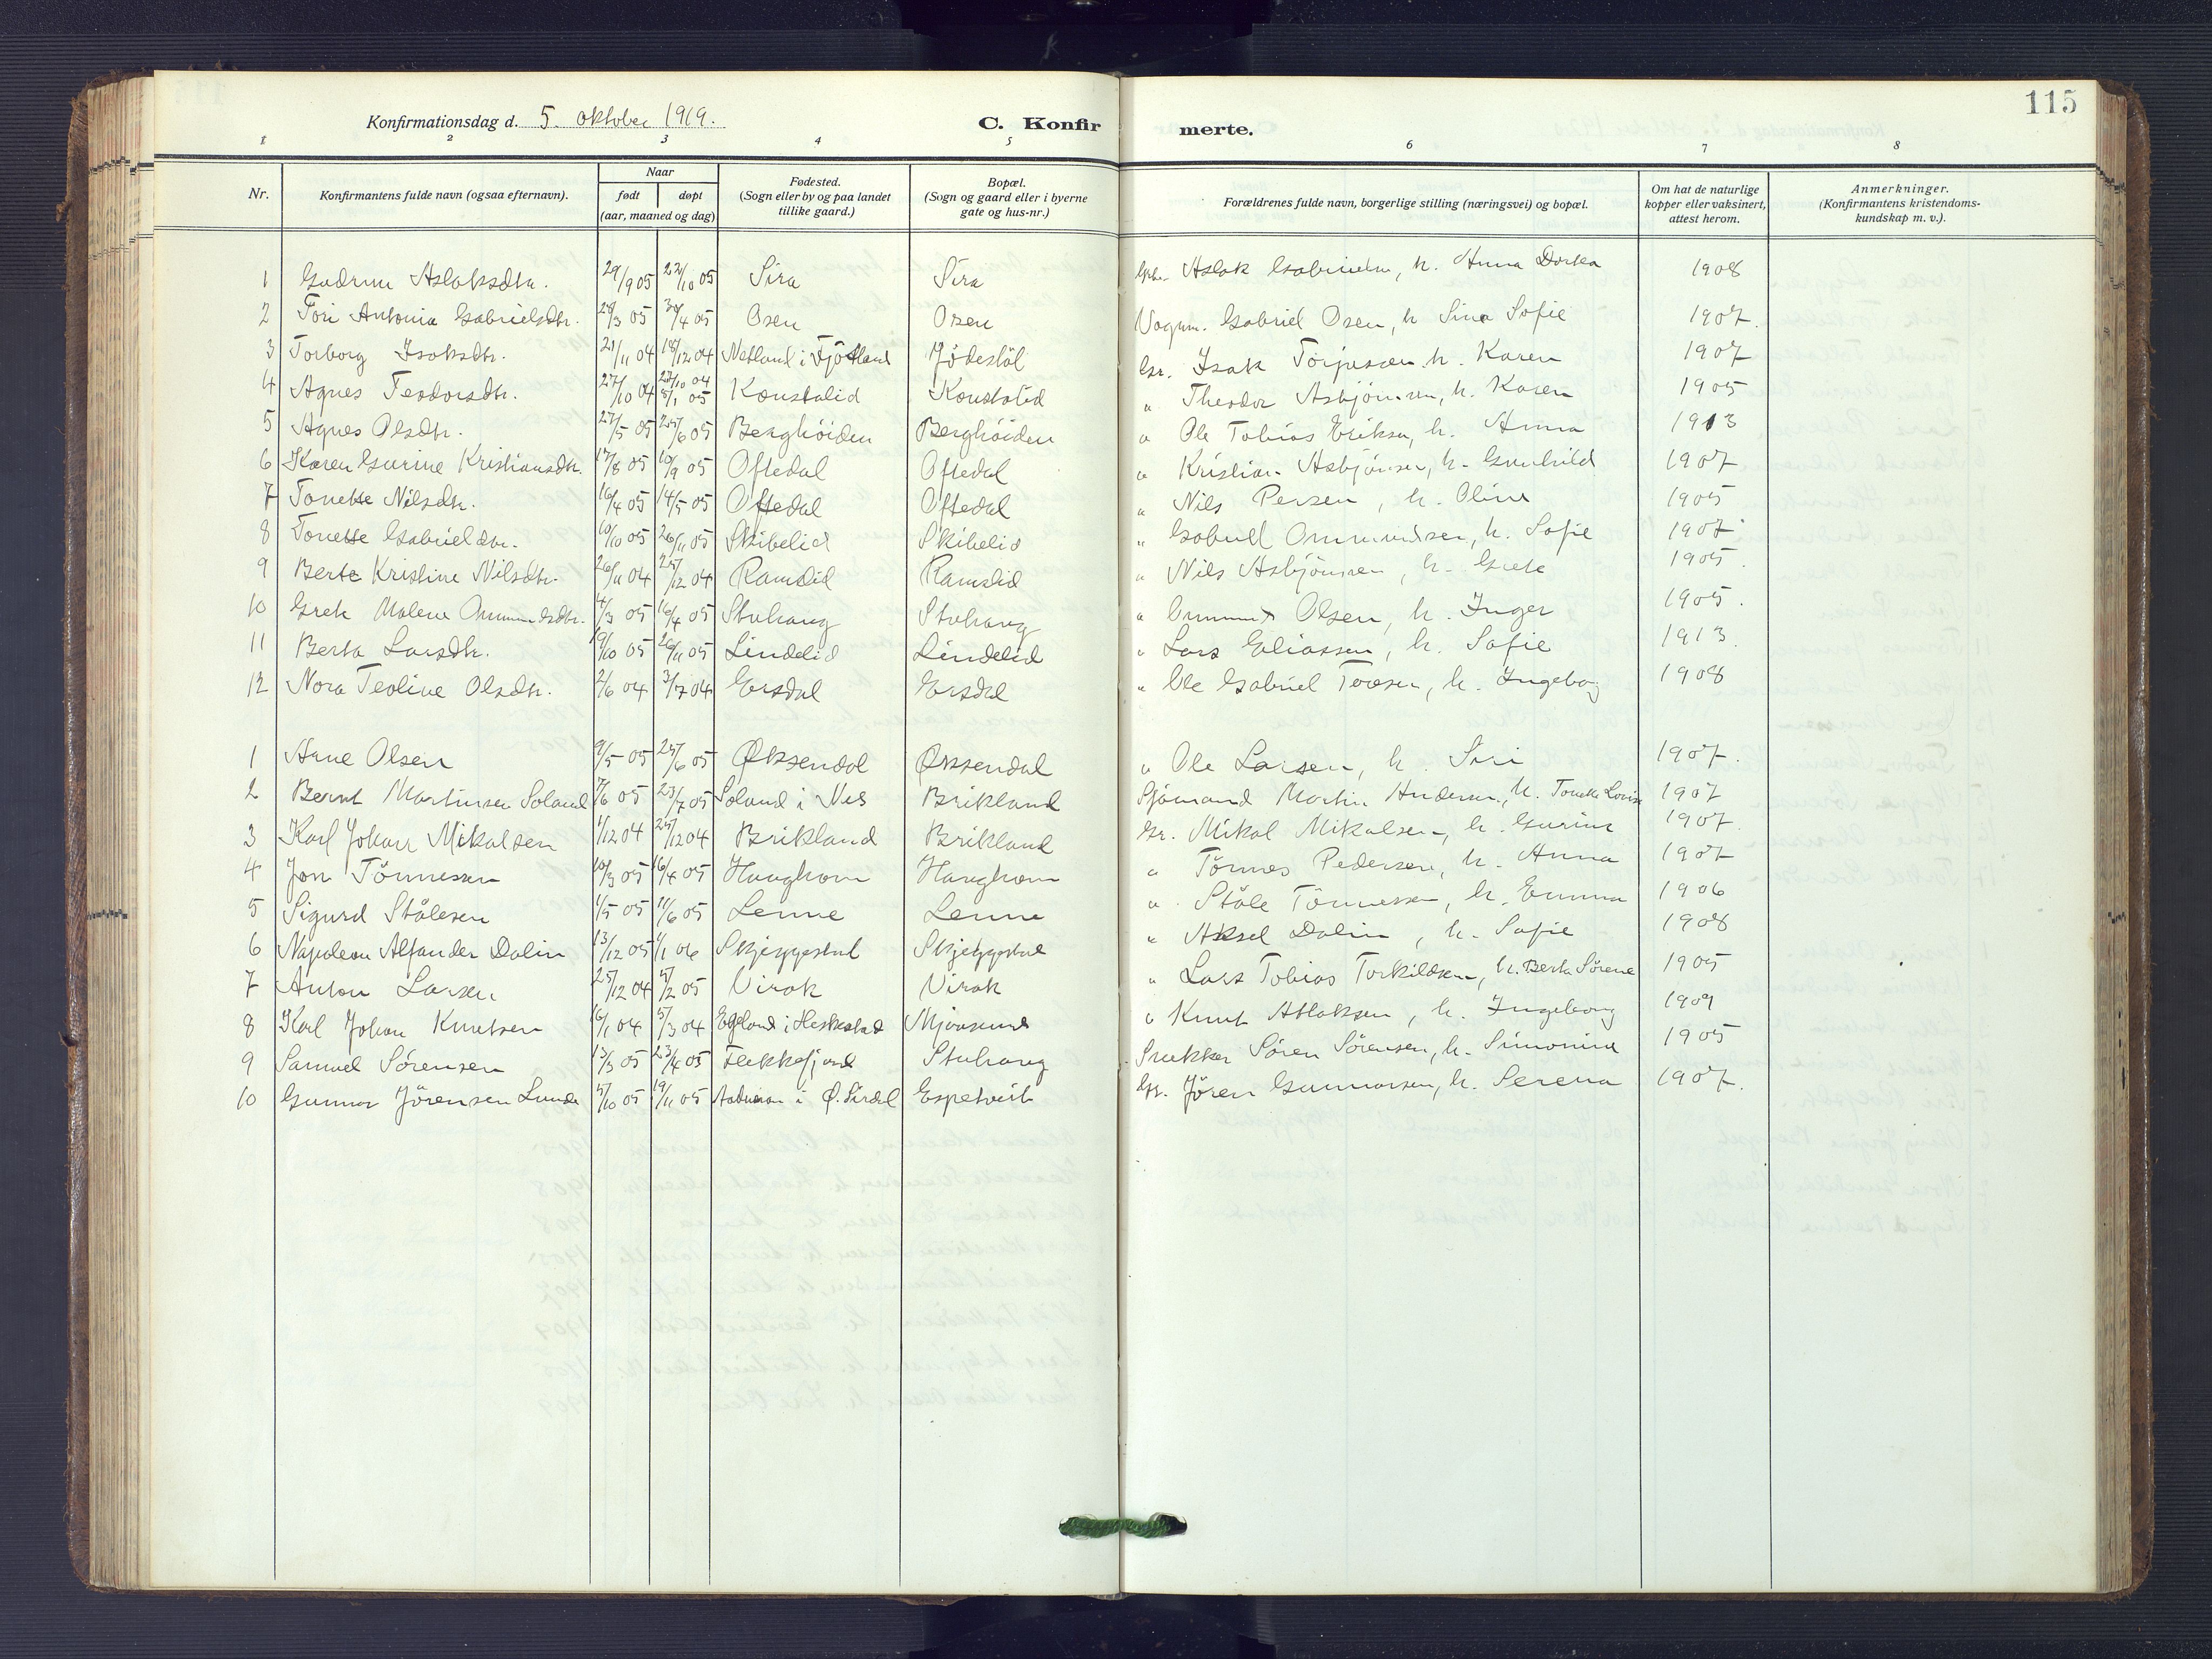 115
Konfirmationsdag d. 5. oktober 1919.
C. Konfirmerte.
1 2 3 4 5 6 7 8
Nr.
Konfirmantens fulde navn (ogsaa efternavn).
Naar
født
døpt
(aar, maaned og dag)
Fødested.
(Sogn eller by og paa landet
tillike gaard.)
Bopæl.
(Sogn og gaard eller i byerne
gate og hus-nr.)
Forældrenes fulde navn, borgerlige stilling (næringsvei) og bopæl.
Om hat de naturlige
kopper eller vaksinert,
attest herom.
Anmerkninger.
(Konfirmantens kristendoms-
kundskap m. v.).
1 Gudrun Aslaksdtr. 29/9 05 22/10 05 Sira Sira Aslak Gabrielsen, h. Anna Dortea 1908
2 Tori Antonia Gabrielsdtr. 29/3 05 30/4 05 Osen Osen Vognm. Gabriel Osen, h Sina Sofie 1907.
3 Torborg Isaksdtr. 21/11 04 18/12 04 Netland i Fjotland Jødestøl Gr. Isak Torjusen h. Karen 1907
4 Agnes Teodorsdtr. 27/10 04 27/10 04 5/1 05 Konstalid Konstalid " Theodor Asbjörnsen, h. Karen 1905
5 Agnes Olsdtr. 27/5 05 25/6 05 Berghöiden Berghöiden " Ole Tobias Eriksen, h. Anna 1913
6 Karen Gurine Kristiansdtr. 17/8 05 10/9 05 Oftedal Oftedal " Kristian Asbjörnsen, h. Gunhild 1907
7 Tonette Nilsdtr. 16/4 05 14/5 05 Oftedal Oftedal " Nils Persen, h. Oline 1905
8 Tonette Gabrielsdtr. 10/10 05 26/11 05 Skibelid Skibelid " Gabriel Ommundsen, h. Sofie 1907
9 Berte Kristine Nilsdtr. 26/11 04 25/12 04 Ramslid Ramslid " Nils Asbjörnsen, h. Grete 1905.
10 Grete Malene Ommundsdtr. 4/3 05 16/4 05 Stuhaug Stuhaug " Ommund Olsen, h. Inger 1905.
11 Berta Larsdtr. 9/10 05 26/11 05 Lindelid Lindelid " Lars Eliassen, h. Sofie 1913.
12 Nora Teoline Olsdtr. 2/6 04 3/7 04 Ersdal Ersdal " Ole Gabriel Tovesen, h. Ingeborg 1908
1 Arne Olsen 9/5 05 25/6 05 Øksendal Øksendal " Ole Larsen, h. Siri 1907.
2 Bernt Martinsen Soland 7/6 05 23/7 05 Soland i Nes Brikland Sjömand Martin Andersen, h. Tonette Lovise 1907
3 Karl Johan Mikalsen 1/12 04 25/12 04 Brikland Brikland Gr. Mikal Mikalsen, h. Gurine 1907.
4 Jon Tönnessen 10/3 05 16/4 05 Haughom Haughom " Tönnes Pedersen, h. Anna 1907
5 Sigurd Stålesen 1/5 05 11/6 05 Lenne Lenne " Ståle Tönnessen, h. Emma 1906
6 Napoleon Alfander Dalin 13/12 05 1/1 06 Skjeggestad Skjeggestad " Aksel Dalin, h. Sofie 1908
7 Anton Larsen 25/12 04 5/2 05 Virak Virak " Lars Tobias Torkildsen, h. Berta Sörene 1905
8 Karl Johan Knutsen 16/1 04 5/3 04 Egeland i Heskestad Mjaasund " Knut Atlaksen, h. Ingeborg 1909
9 Samuel Sørensen 13/3 05 23/4 05 Flekkefjord Stuhaug Snekker Sören Sørensen, h. Simonine 1905
10 Gunnar Jörensen Lunde 5/10 05 19/11 05 i Ø. Sirdal Espetveit Gr. Jören Gunnarsen, h. Serena 1907.